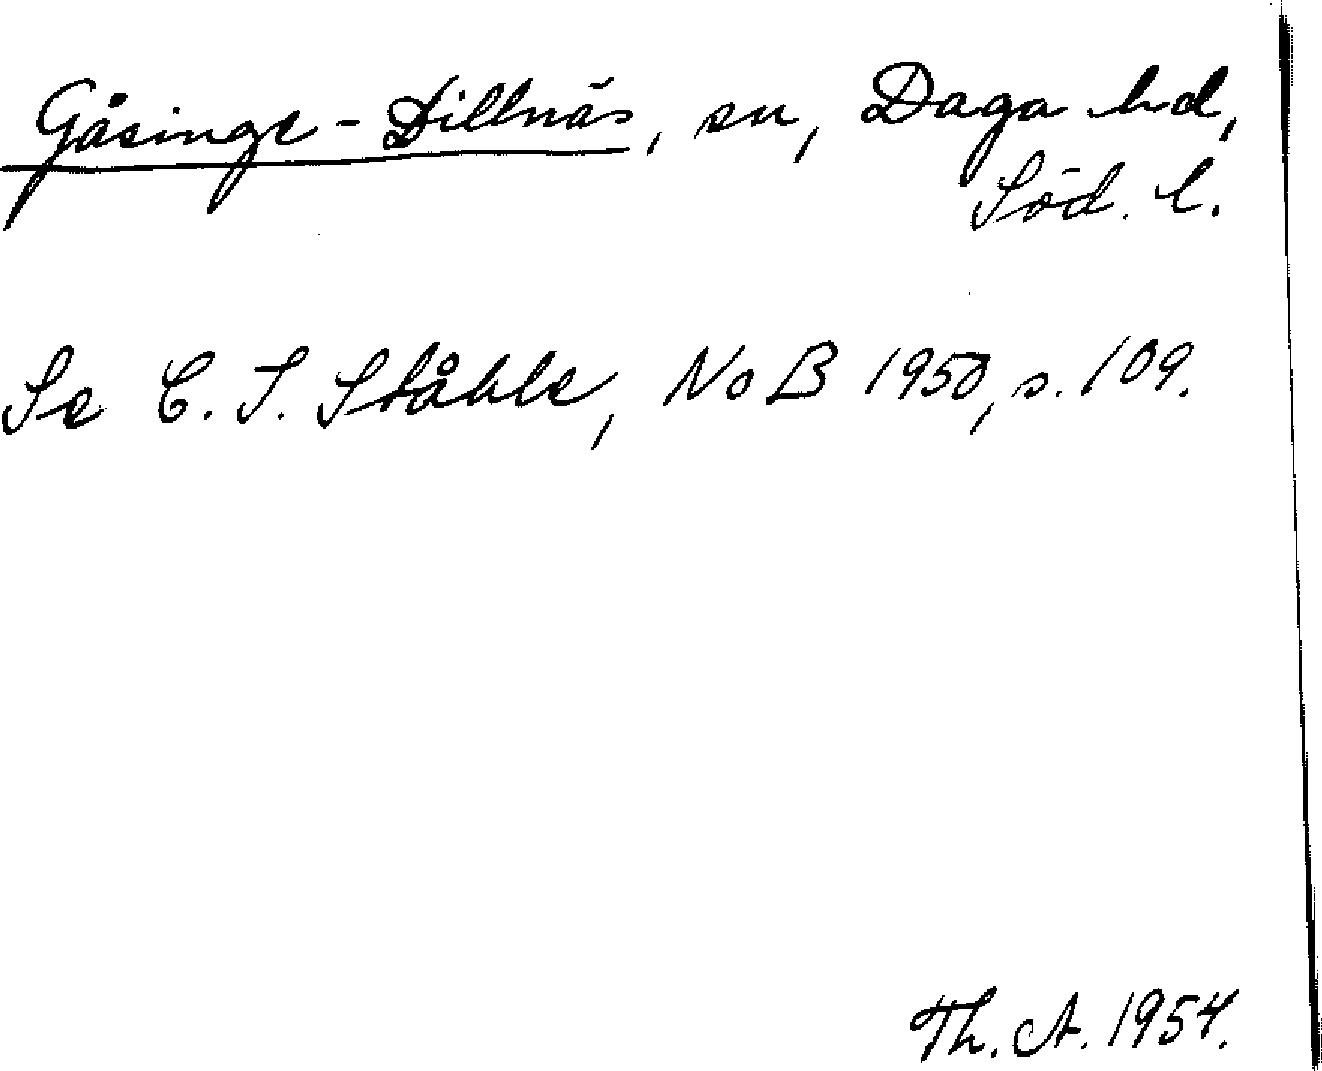 Gåsinge-Dillnäs, sn, Daga hd,
Söd. l.
Se C. I. Ståhle, NoB 1950, s. 109.
Th. A. 1954.